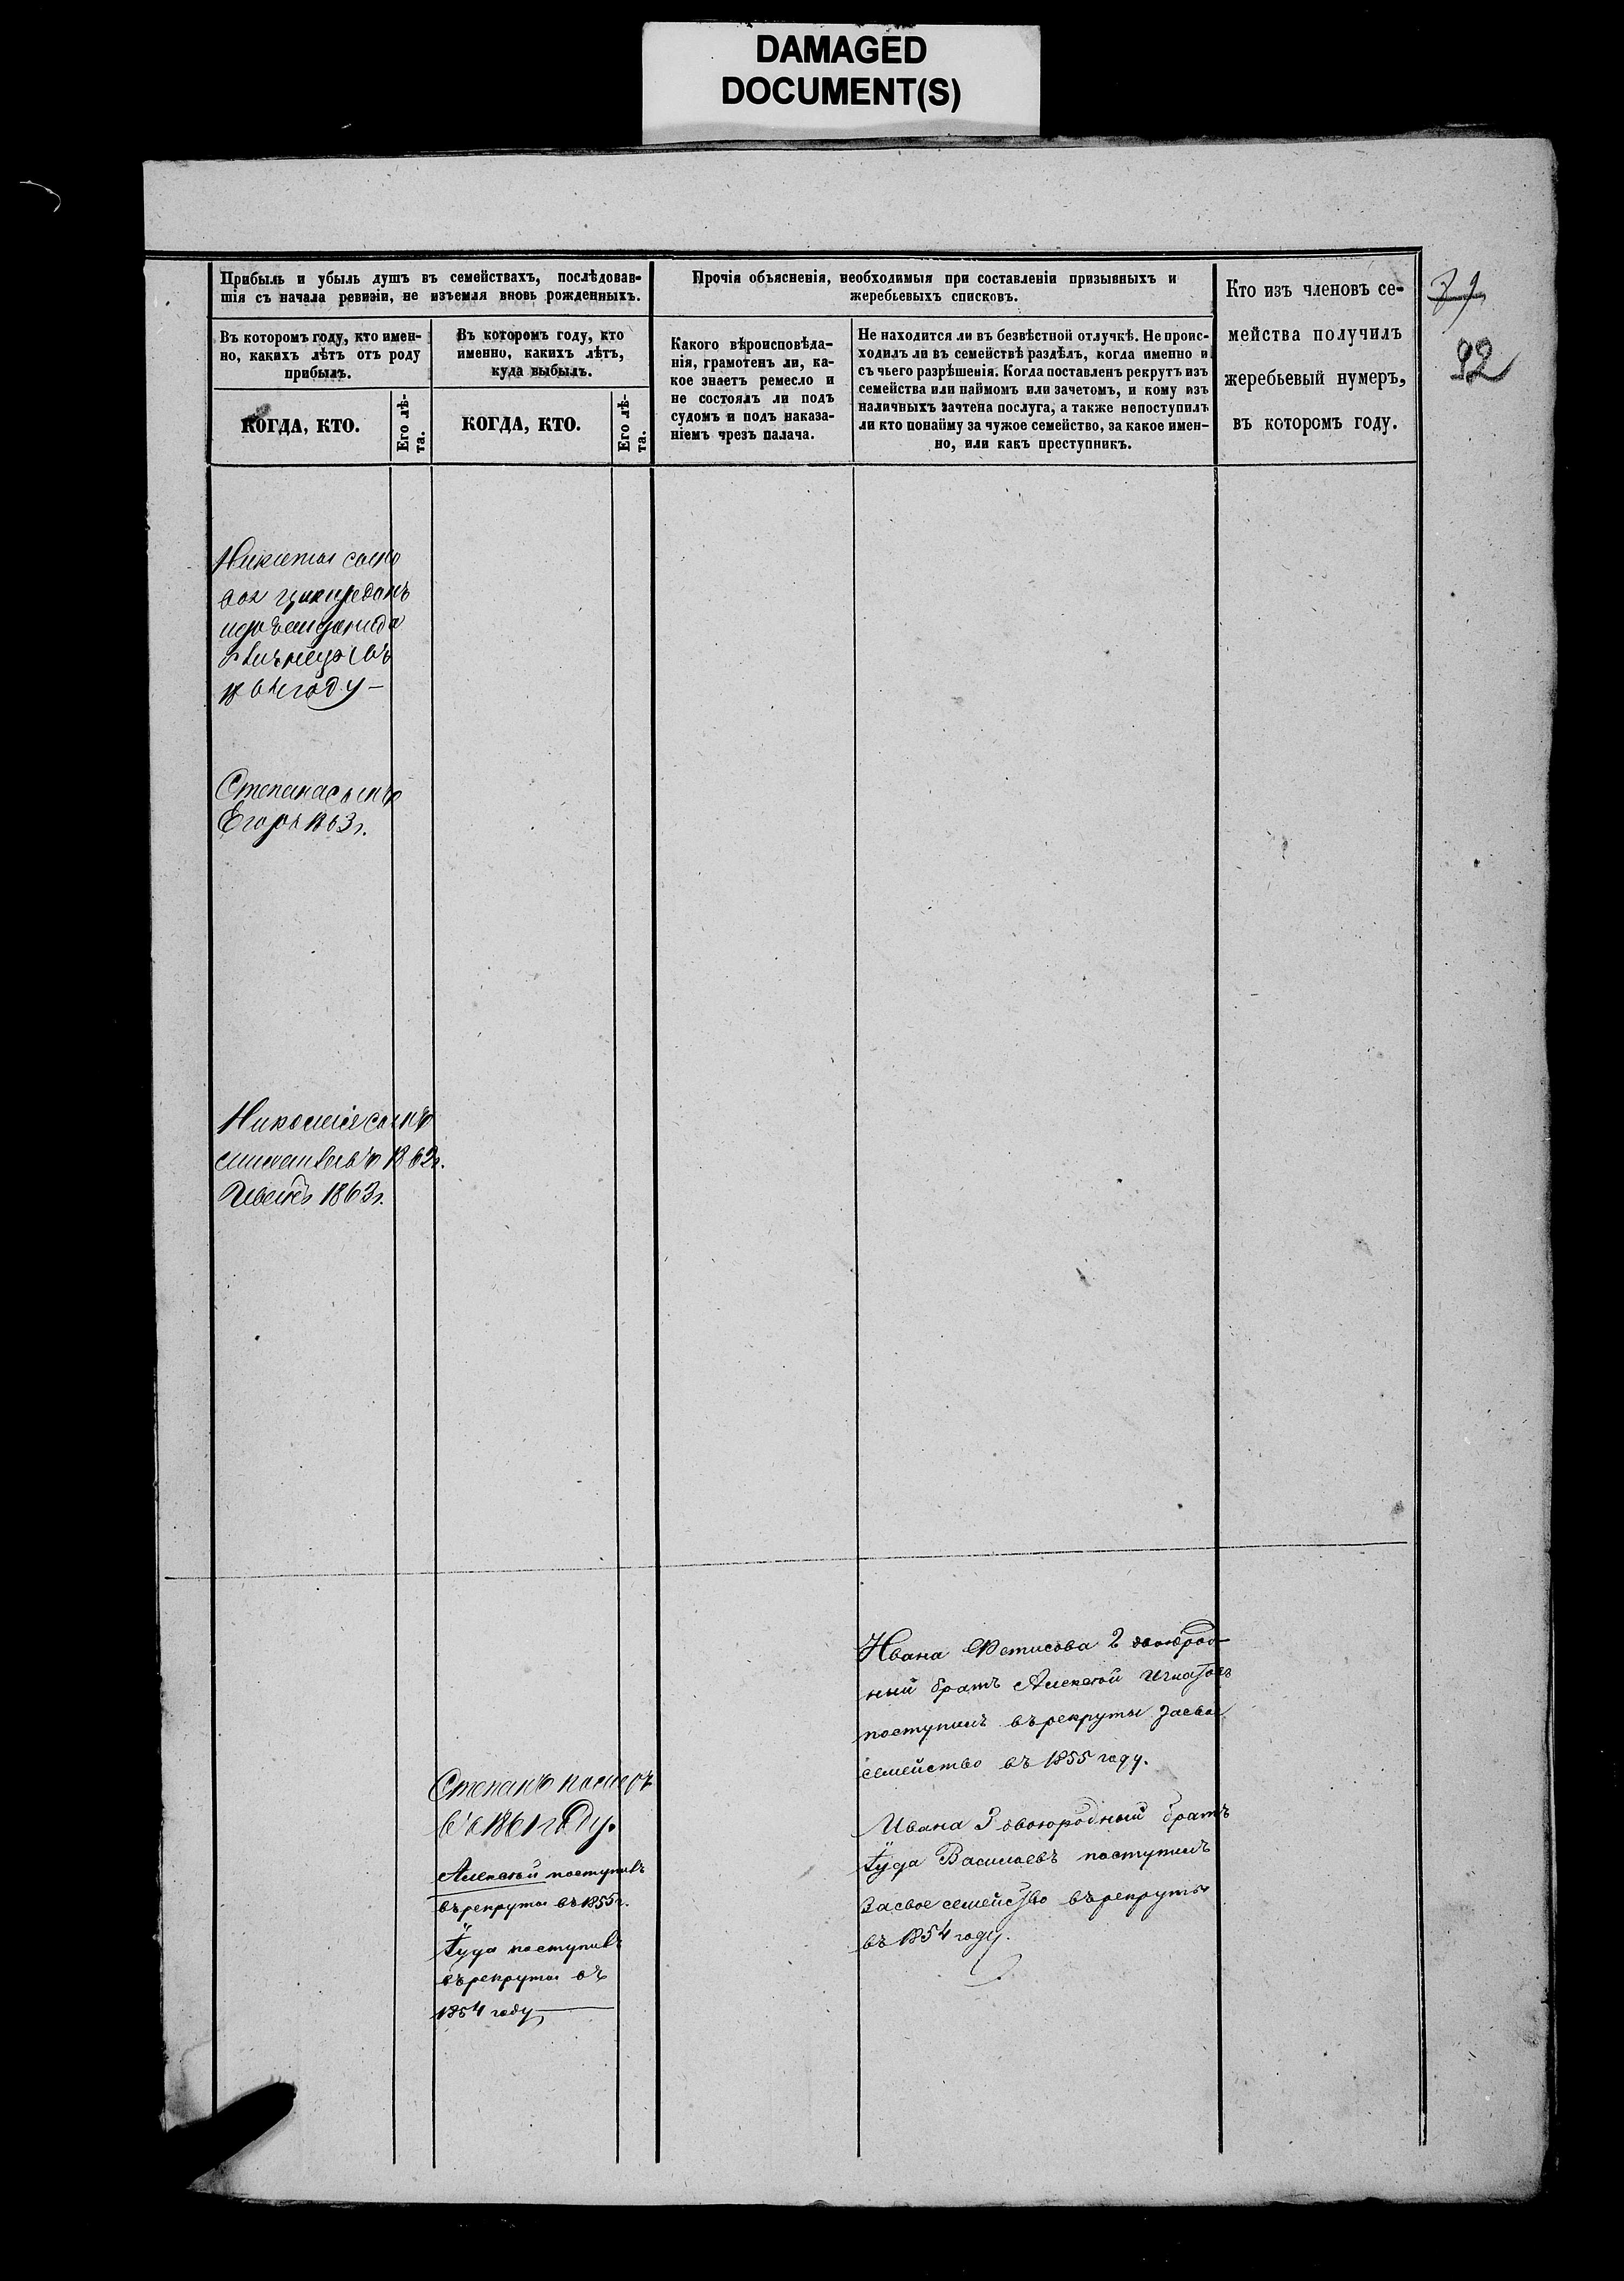 DAMAGED
DOCUMENT(S)
Прибыль и убыль душъ въ семействахъ, послѣдовав-
шія съ начала ревизіи, не изъемля вновь рожденныхъ.
Въ которомъ году, кто имен-
но, какихъ лѣтъ отъ роду
прибылъ.
КОГДА, КТО.
Его лѣ-
та.
Въ которомъ году, кто
именно, какихъ лѣтъ,
куда выбылъ.
КОГДА, КТО.
Его лѣ-
та.
Прочія объясненія, необходимыя при составленіи призывныхъ и
жеребьевыхъ списковъ.
Какого вѣроисповѣда-
нія, грамотенъ ли, ка-
кое знаетъ ремесло и
не состоялъ ли подъ
судомъ и подъ наказа-
ніемъ чрезъ палача.
Не находится ли въ безвѣстной отлучкѣ. Не проис-
ходилъ ли въ семействѣ раздѣлъ, когда именно и
съ чьего разрѣшенія. Когда поставленъ рекрутъ изъ
семейства или наймомъ или зачетомъ, и кому изъ
наличныхъ зачтена послуга, а также непоступилъ
ли кто понайму за чужое семейство, за какое имен-
но, или какъ преступникъ.
Кто изъ членовъ се-
мейства получилъ
жеребьевый нумеръ,
въ которомъ году.
92
Никиты
году —
Степана сынъ
Егоръ 1863 г.
Николая сынъ
1862 г.
Иванъ 1863 г.
Степанъ померъ
въ 1861 году.
Алексѣй поступилъ
въ рекруты въ 1855 г.
Іуда поступилъ
въ рекруты въ
1854 году
Ивана Фетисова 2 двоюрод-
ный братъ Алексѣй Игнатовъ
поступилъ въ рекруты за свое
семейство въ 1855 году.
Ивана 3 двоюродный братъ
Іуда Васильевъ поступилъ
за свое семейство въ рекруты
въ 1854 году.